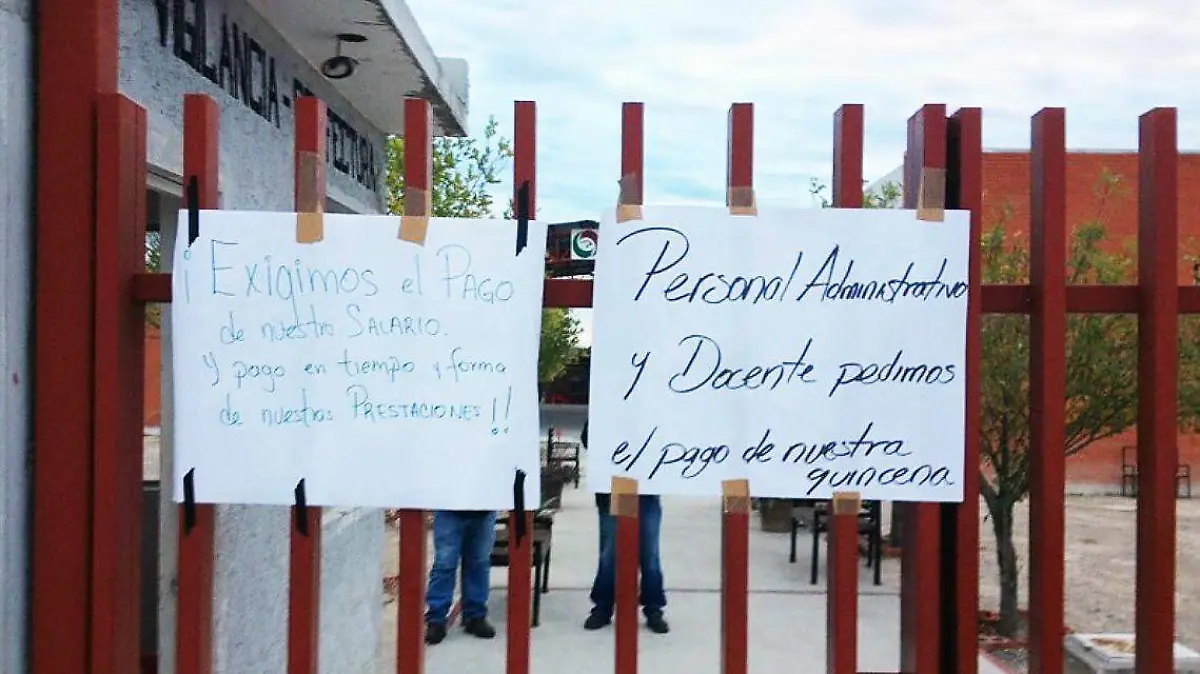 VIGILANCIA-
¡Exigimos el PAGO
de nuestro SALARIO.
y pago en tiempo y forma
de nuestras PRESTACIONES!!
Personal Administrativo
y Docente pedimos
el pago de nuestra
quincena